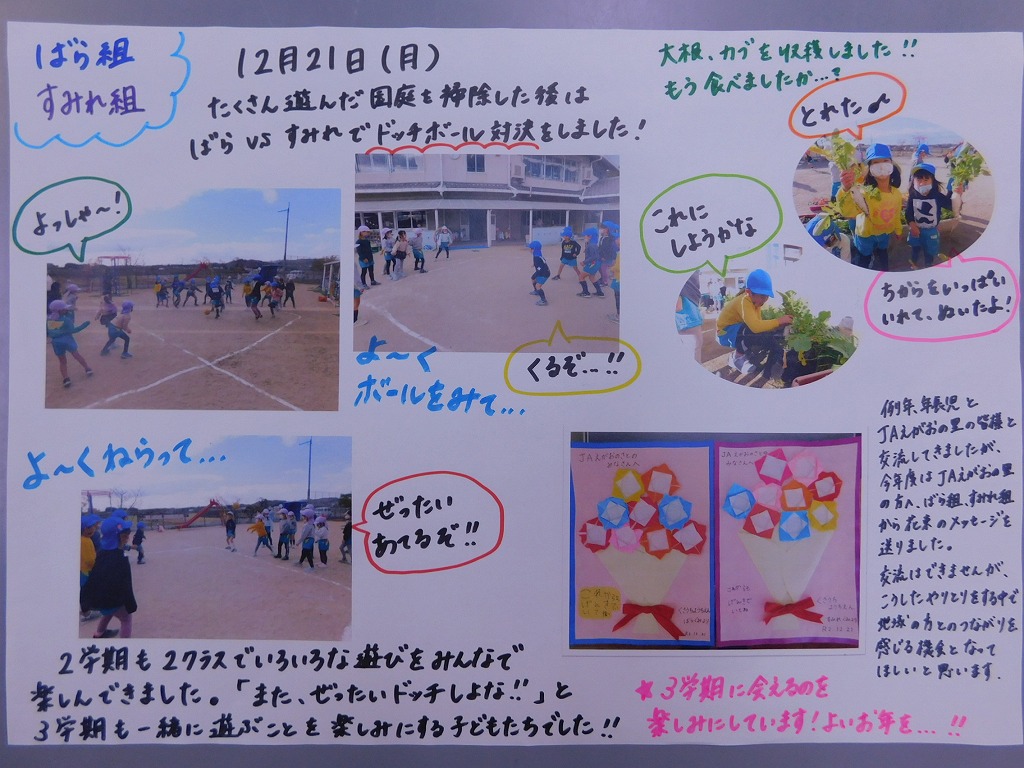 ばら組
すみれ組
12月21日(月)
たくさん遊んだ園庭を掃除した後は
ばらvsすみれでドッチボール対決をしました!
大根、カブを収穫しました!!
もう食べましたか…?
とれた♪
よっしゃ〜!
これに
しようかな
ちからをいっぱい
いれて、ぬいたよ!
よ〜く
ボールをみて…
くるぞ…!!
よ〜くねらって…
ぜったい
あてるぞ!!
JAえがおのさとの
みなさんへ
JAえがおのさとの
みなさんへ
例年、年長児と
JAえがおの里の皆様と
交流してきましたが、
今年度はJAえがおの里
の方へ、ばら組、すみれ組
から花束のメッセージを
送りました。
交流はできませんが、
こうしたやりとりをする中で
地域の方とのつながりを
感じる機会となって
ほしいと思います.
2学期も2クラスでいろいろな遊びをみんなで
楽しんできました。「また、ぜったいドッチしよな!!」と
3学期も一緒に遊ぶことを楽しみにする子どもたちでした!!
★3学期に会えるのを
楽しみにしています!よいお年を…!!